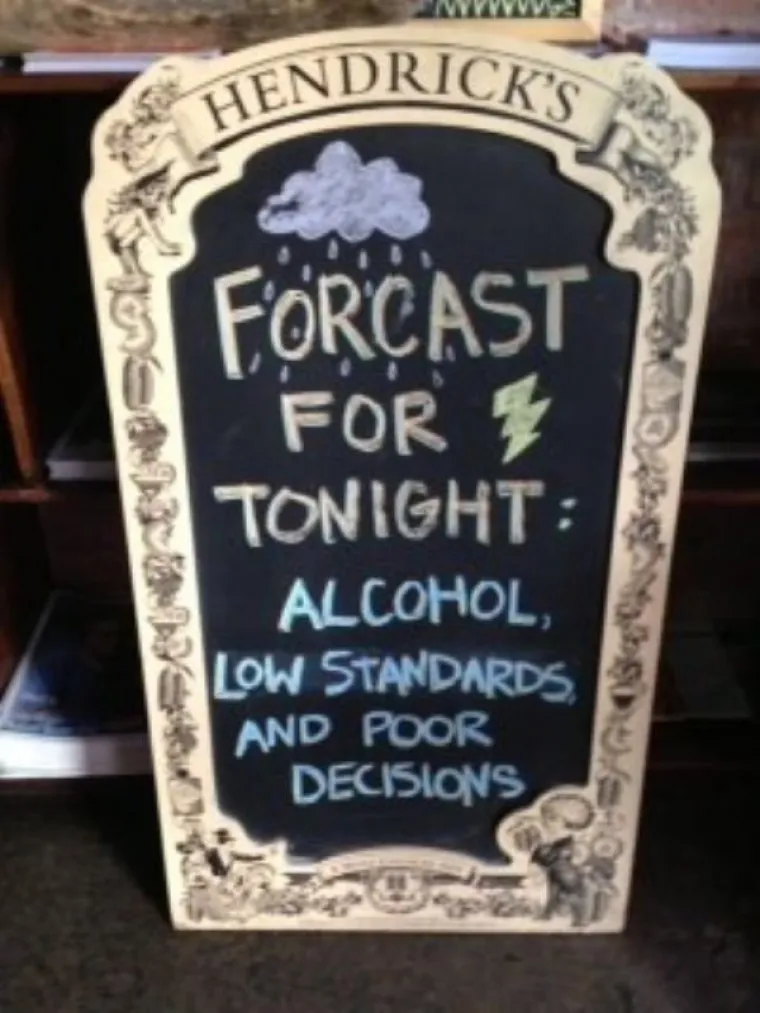 HENDRICK'S
FORCAST
FOR
TONIGHT:
ALCOHOL,
LOW STANDARDS,
AND POOR
DECISIONS